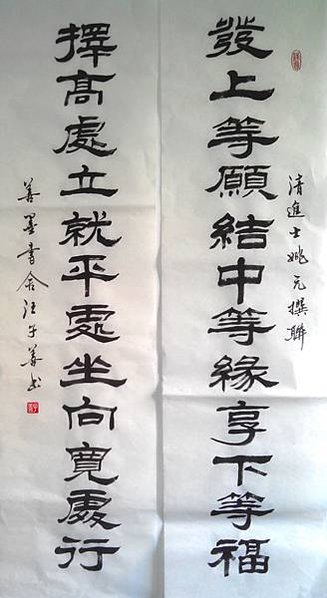 發上等願結中等緣享下等福
清進士姚元撰聯
擇高處立就平處坐向寬處行
善墨書舍汪子善书